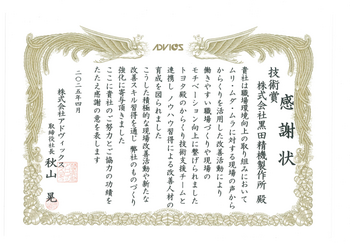 ADVICS
感謝状
技術賞
株式会社黒田精機製作所 殿
貴社は職場環境向上の取り組みにおいて
ムリ・ムダ・ムラに対する現場の声から
からくりを活用した改善活動により
働きやすい職場づくりや現場の
モチベーション向上に繋げられました
トヨタ殿のからくり技術支援チームと
連携し ノウハウ習得による改善人材の
育成を図られました
こうした積極的な現場改善活動や新たな
改善スキル習得を通じ 弊社のものづくり
強化に寄与頂きました
ここに貴社のご努力とご協力の功績を
たたえ感謝の意を表します
二〇二五年四月
株式会社アドヴィックス
取締役社長 秋山 晃